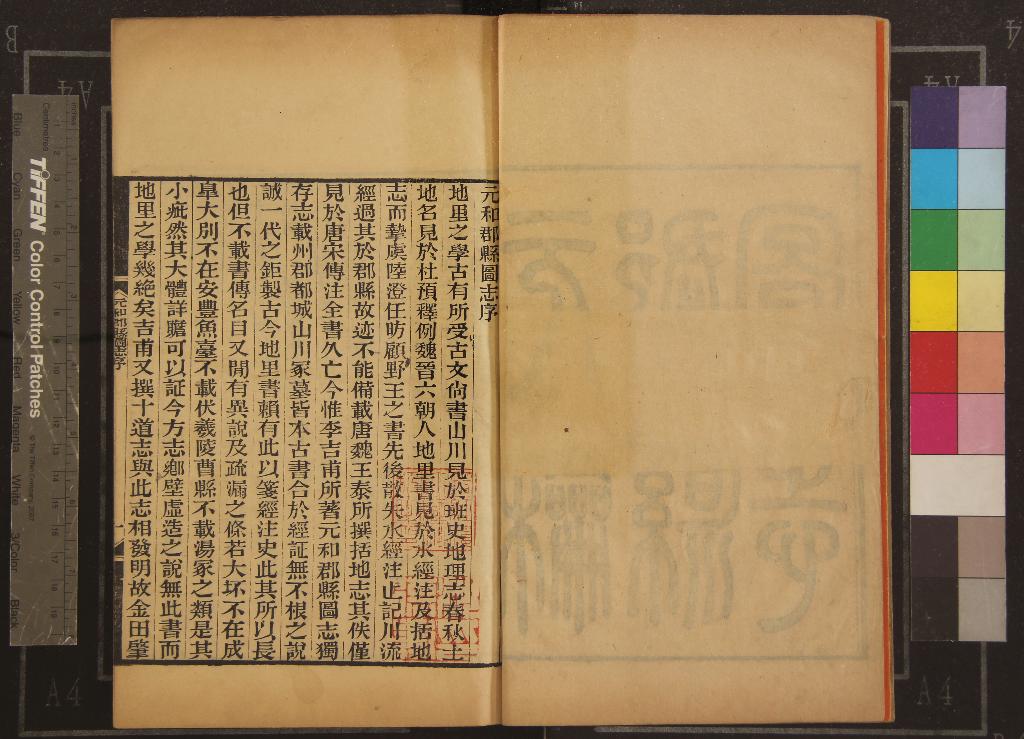 元和郡縣圖志序
地里之學古有所受古文尙書山川見於班史地理志春秋土
地名見於杜預釋例魏晉六朝人地里書見於水經注及括地
志而摯虞陸澄任昉顧野王之書先後散失水經注止記川流
經過其於郡縣故迹不能備載唐魏王泰所撰括地志其佚僅
見於唐宋傳注全書久亡今惟李吉甫所著元和郡縣圖志獨
存志載州郡都城山川冢墓皆本古書合於經証無不根之說
誠一代之鉅製古今地里書賴有此以箋經注史此其所以長
也但不載書傳名目又閒有異說及疏漏之條若大坏不在成
皐大別不在安豐魚臺不載伏羲陵曹縣不載湯冢之類是其
小疵然其大體詳贍可以証今方志鄉壁虛造之說無此書而
地里之學幾絶矣吉甫又撰十道志與此志相發明故金田肇
元和郡縣圖志序
一
TIFFEN Color Control Patches
© The Tiffen Company, 2007
Centimetres
Inches
Blue
Cyan
Green
Yellow
Red
Magenta
White
3/Color
Black
A4
A4
A4
A4
B